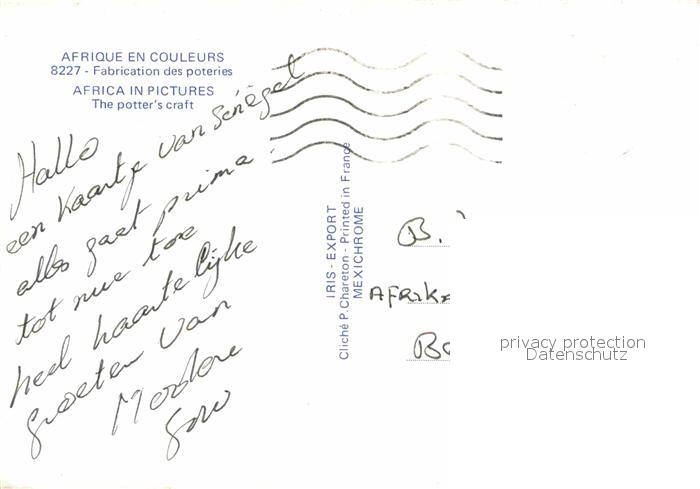 AFRIQUE EN COULEURS
8227 - Fabrication des poteries
AFRICA IN PICTURES
The potter's craft
Hallo
een kaartje van Sénégal
alles gaat prima.
tot nue toe
heel haartelijke
groeten van
IRIS - EXPORT
Cliché P. Chareton - Printed in France
MEXICHROME
B.
AFRIKA
privacy protection
Datenschutz